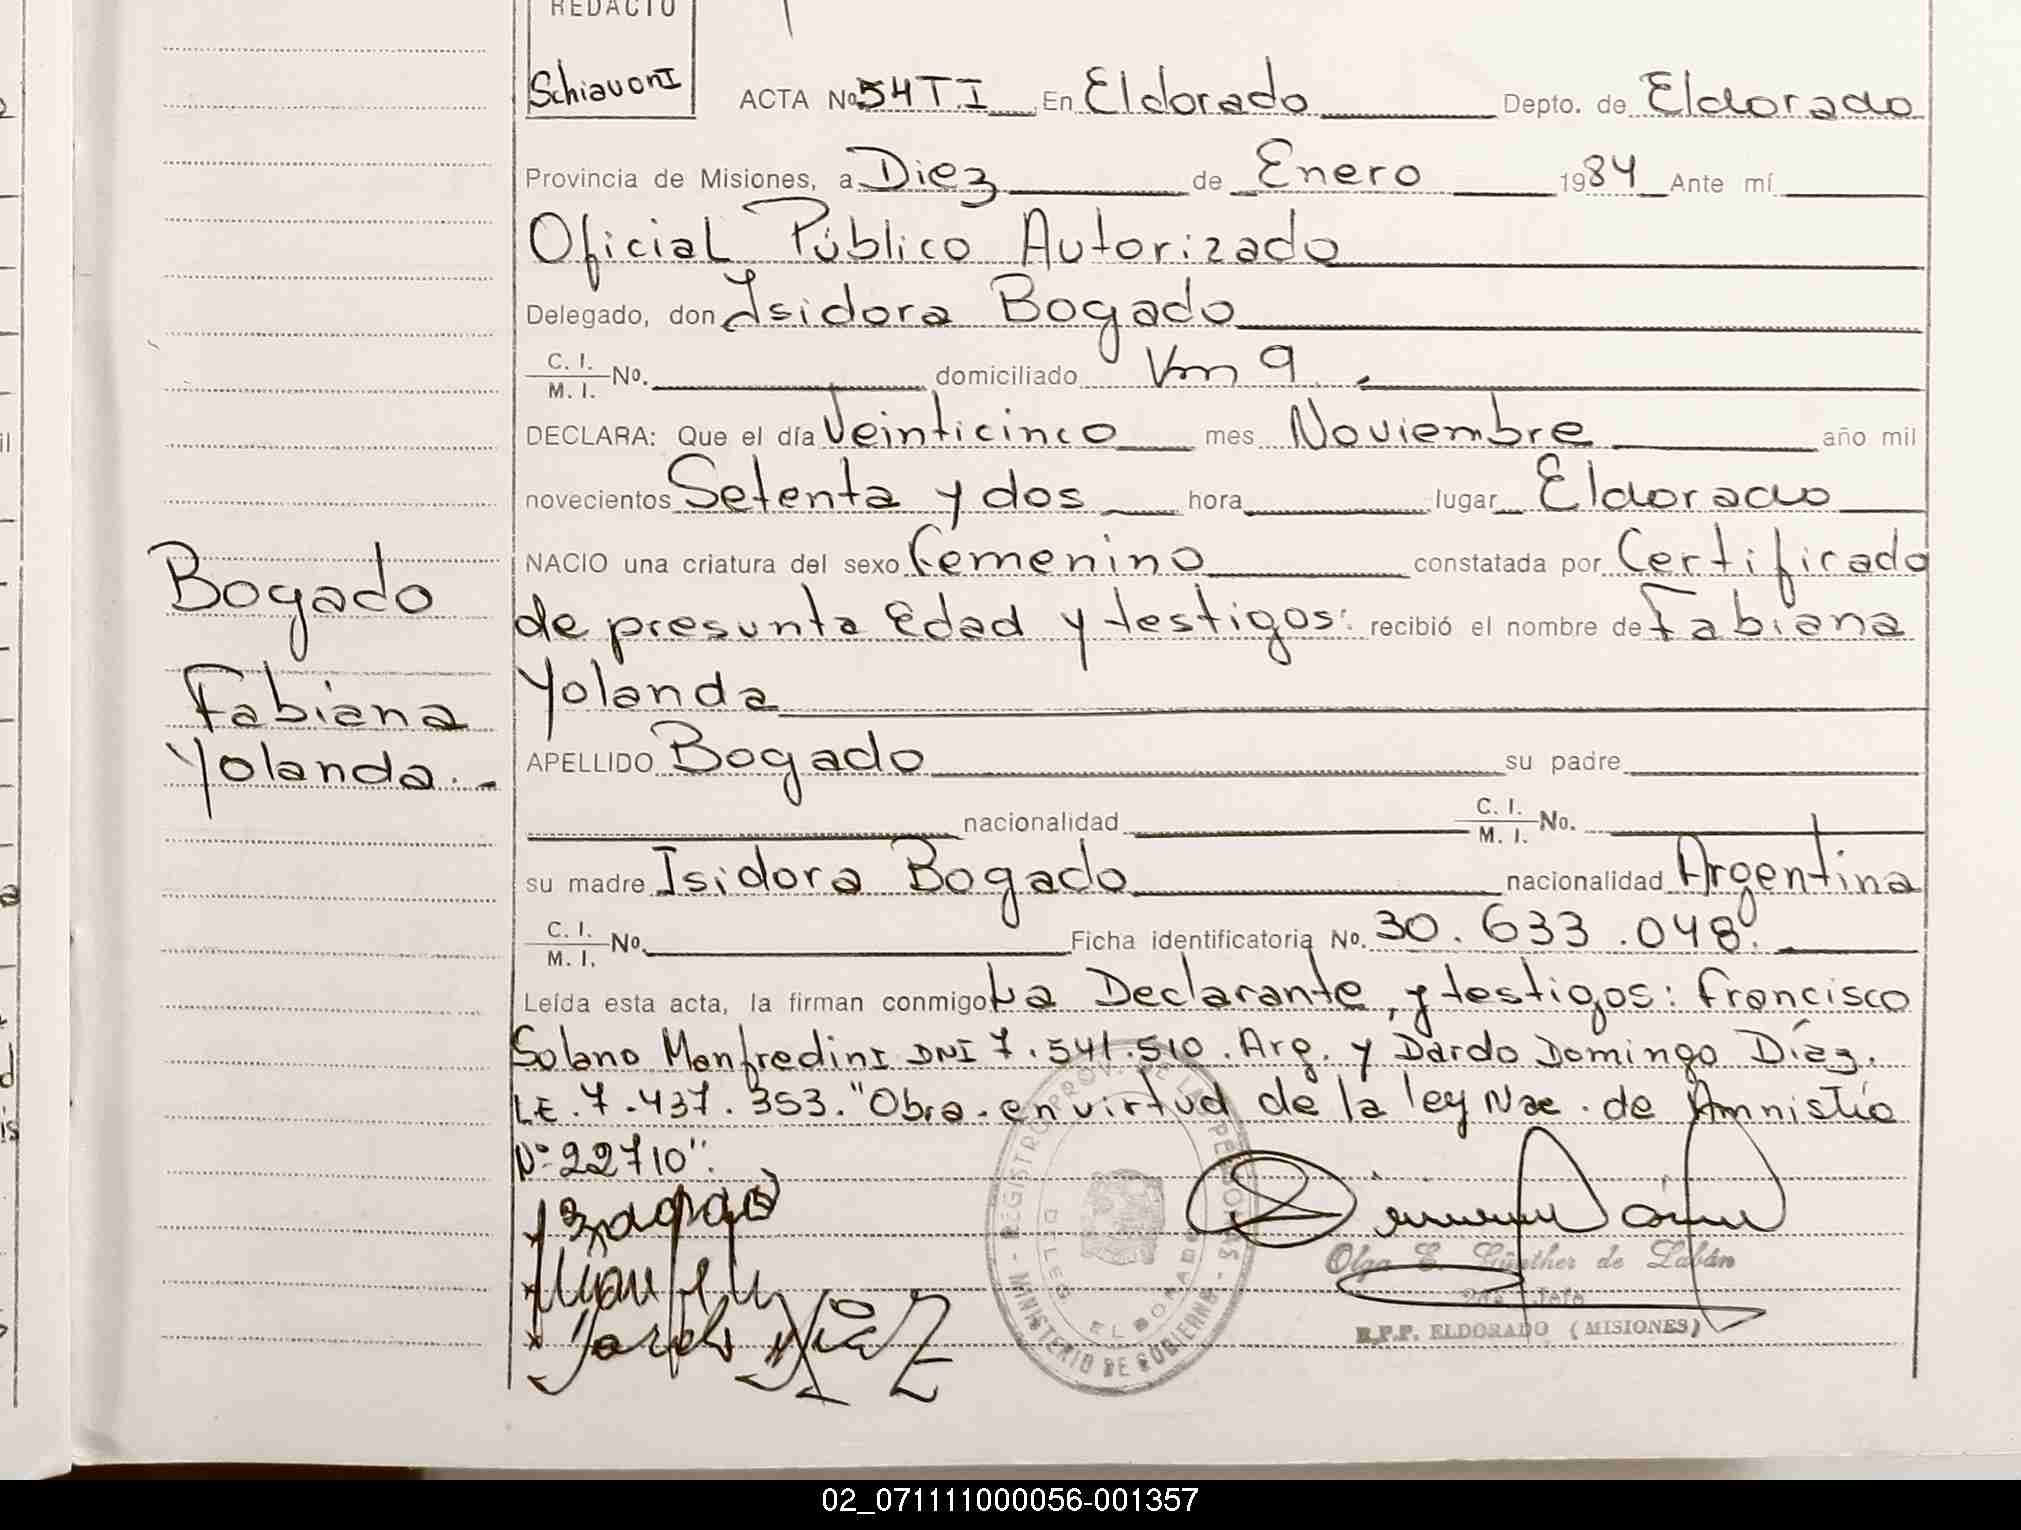 REDACTO
Schiavoni
ACTA No 54 T I En Eldorado Depto. de Eldorado
Provincia de Misiones, a Diez de Enero 1984 Ante mí
Oficial Público Autorizado
Delegado, don Isidora Bogado
C. I.
M. I. No. domiciliado Km 9
DECLARA: Que el día Veinticinco mes Noviembre año mil
novecientos Setenta y dos hora lugar Eldorado
NACIO una criatura del sexo Femenino constatada por Certificado
de presunta Edad y testigos: recibió el nombre de Fabiana
Yolanda
Bogado
Fabiana
Yolanda.-
APELLIDO Bogado su padre
nacionalidad C. I.
M. I. No.
su madre Isidora Bogado nacionalidad Argentina
C. I.
M. I. No. Ficha identificatoria No. 30.633.048.
Leída esta acta, la firman conmigo La Declarante, y testigos: Francisco
Solano Manfredini DNI 7.541.510. Arg. y Dardo Domingo Díaz.
LE.7.437.353."Obra.en virtud de la ley Nac. de Amnistía
Nº 22710".
REGISTRO PROV. DE LAS PERSONAS
MINISTERIO DE GOBIERNO
DELEG. ELDORADO
Olga E. Günther de Labán
2da. Jefe
R.P.P. ELDORADO (MISIONES)
02_071111000056-001357